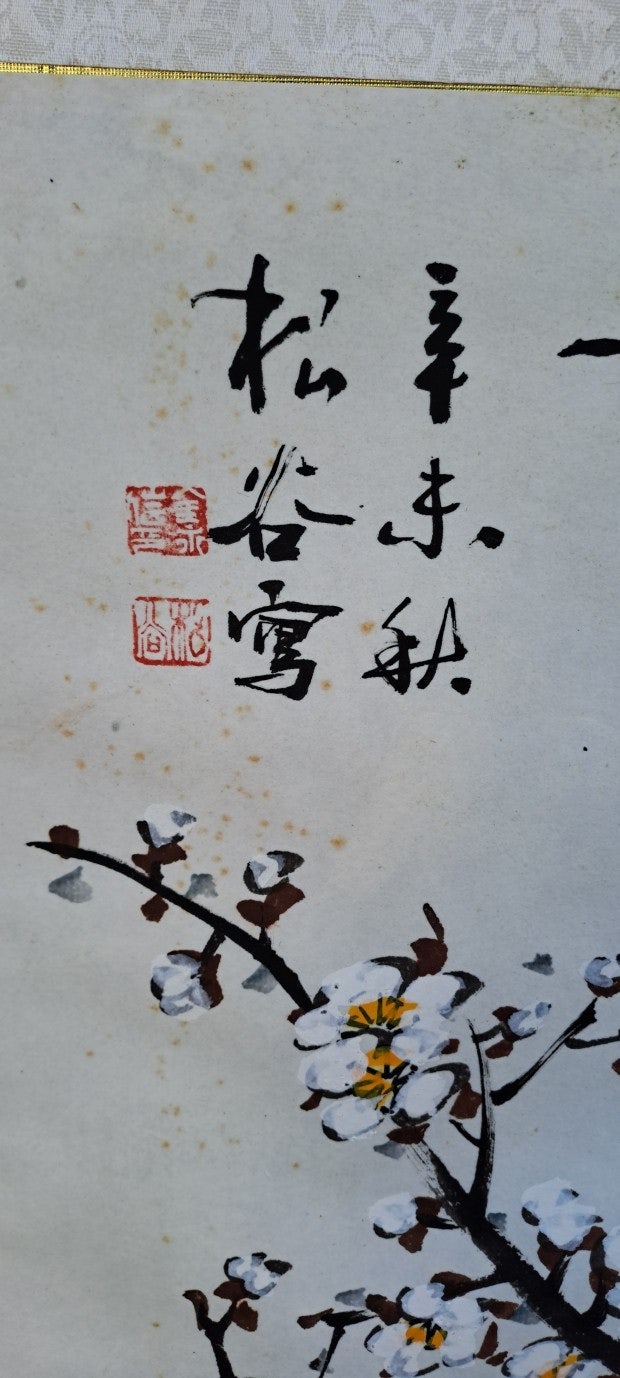 一
辛未秋
松谷寫
松谷